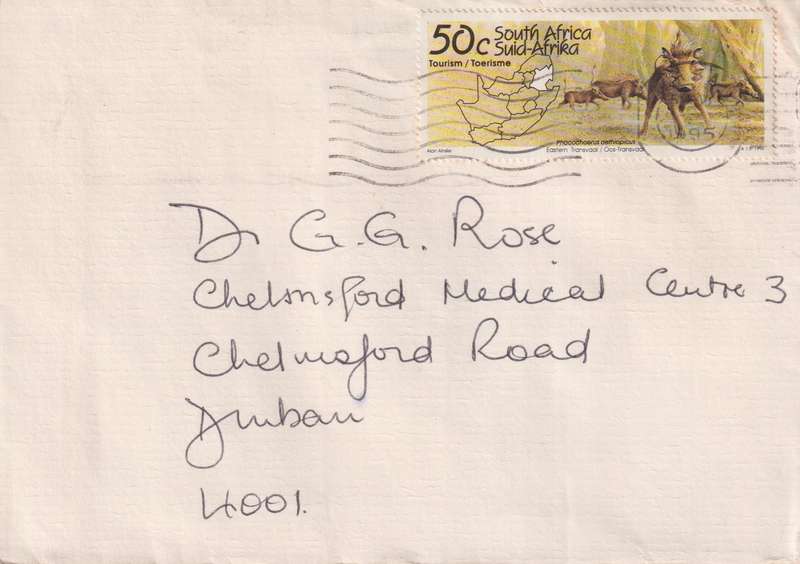 50c South Africa
Suid-Afrika
Tourism / Toerisme
Phacochoerus aethiopicus
Eastern Transvaal / Oos-Transvaal
1995
Dr G.G. Rose
Chelmsford Medical Centre 3
Chelmsford Road
Durban
4001.